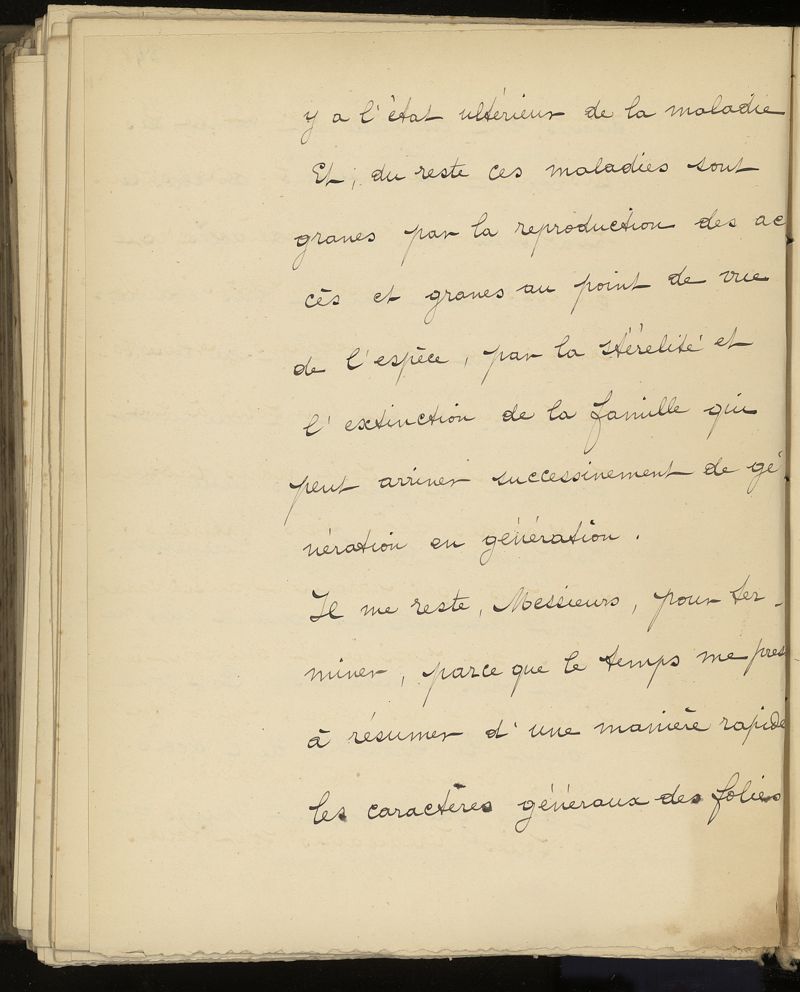 y a l'état ultérieur de la maladie
Et, du reste ces maladies sont
graves par la reproduction des ac
cès et graves au point de vue
de l'espèce, par la stérélité et
l'extinction de la famille qui
peut arriver successivement de gé
nération en génération.
Il me reste, Messieurs, pour ter-
miner, parce que le temps me pres
à résumer d'une manière rapide
les caractères généraux des folies